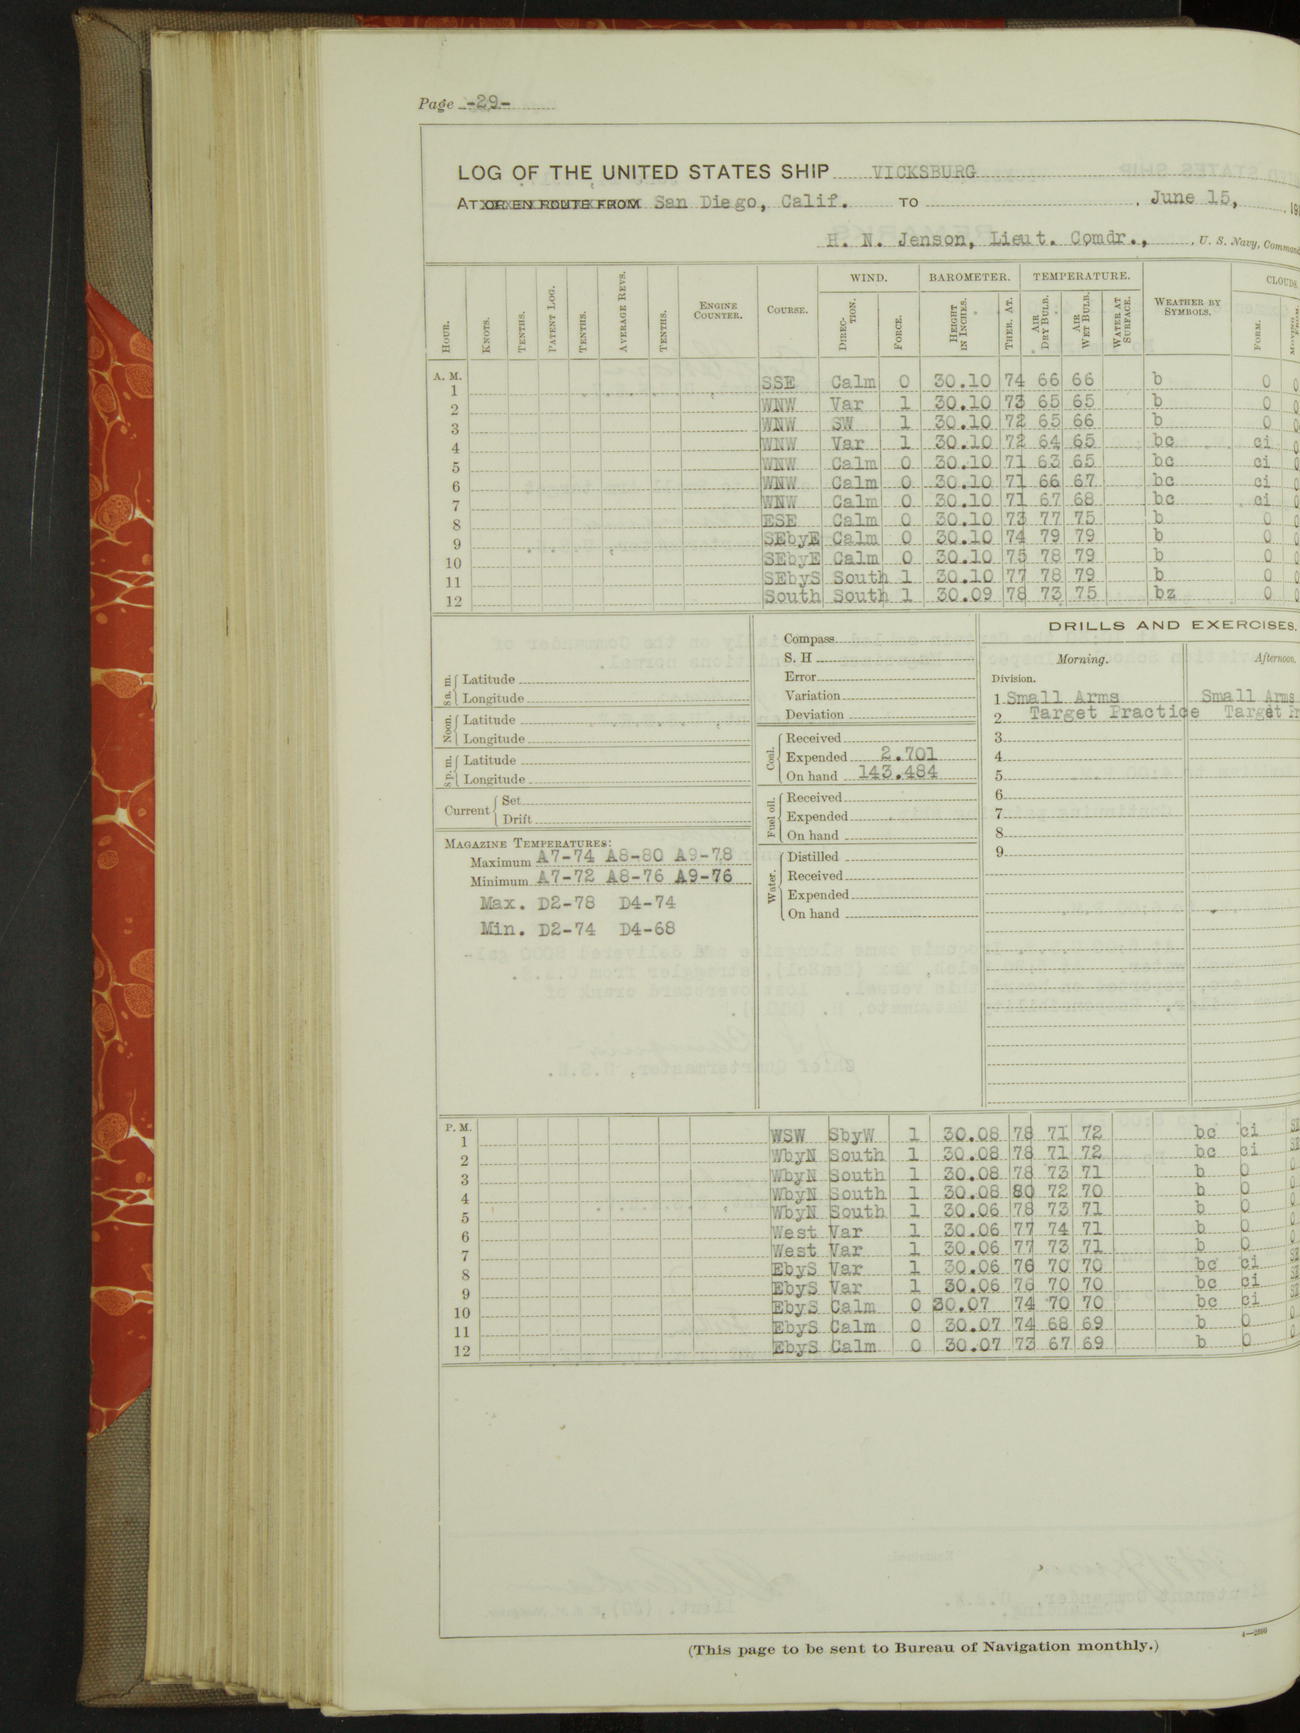 Page -29-
LOG OF THE UNITED STATES SHIP VICKSBURG
AT OR EN ROUTE FROM San Diego, Calif. TO , June 15, 191
H. N. Jenson, Lieut. Comdr., , U. S. Navy, Command
HOUR. KNOTS. TENTHS. PATENT LOG. TENTHS. AVERAGE REVS. TENTHS. ENGINE COUNTER. COURSE. WIND. DIRECTION. FORCE. BAROMETER. HEIGHT IN INCHES. THER. AT. TEMPERATURE. AIR DRY BULB. AIR WET BULB. WATER AT SURFACE. WEATHER BY SYMBOLS. CLOUDS FORM. MOVING
A. M.
1 SSE Calm 0 30.10 74 66 66 b 0 0
2 WNW Var 1 30.10 73 65 65 b 0 0
3 WNW SW 1 30.10 72 65 66 b 0 0
4 WNW Var 1 30.10 72 64 65 bc ci 0
5 WNW Calm 0 30.10 71 63 65 bc ci 0
6 WNW Calm 0 30.10 71 66 67 bc ci 0
7 WNW Calm 0 30.10 71 67 68 bc ci 0
8 ESE Calm 0 30.10 73 77 75 b 0 0
9 SEbyE Calm 0 30.10 74 79 79 b 0 0
10 SEbyE Calm 0 30.10 75 78 79 b 0 0
11 SEbyS South 1 30.10 77 78 79 b 0 0
12 South South 1 30.09 78 73 75 bz 0 0
8 a. m. Latitude
Longitude
Noon. Latitude
Longitude
8 p. m. Latitude
Longitude
Current Set
Drift
MAGAZINE TEMPERATURES:
Maximum A7-74 A8-80 A9-78
Minimum A7-72 A8-76 A9-76
Max. D2-78 D4-74
Min. D2-74 D4-68
Compass
S. H
Error
Variation
Deviation
Coal. Received
Expended 2.701
On hand 143.484
Fuel oil. Received
Expended
On hand
Water. Distilled
Received
Expended
On hand
DRILLS AND EXERCISES.
Morning. Afternoon.
Division.
1 Small Arms Small Arms
2 Target Practice Target Pr
3
4
5
6
7
8
9
P. M.
1 WSW SbyW 1 30.08 78 71 72 bc ci SE
2 WbyN South 1 30.08 78 71 72 bc ci SE
3 WbyN South 1 30.08 78 73 71 b 0 0
4 WbyN South 1 30.08 80 72 70 b 0 0
5 WbyN South 1 30.06 78 73 71 b 0 0
6 West Var 1 30.06 77 74 71 b 0 0
7 West Var 1 30.06 77 73 71 b 0 0
8 EbyS Var 1 30.06 76 70 70 bc ci SE
9 EbyS Var 1 30.06 76 70 70 bc ci SE
10 EbyS Calm 0 30.07 74 70 70 bc ci SE
11 EbyS Calm 0 30.07 74 68 69 b 0 0
12 EbyS Calm 0 30.07 73 67 69 b 0 0
(This page to be sent to Bureau of Navigation monthly.)